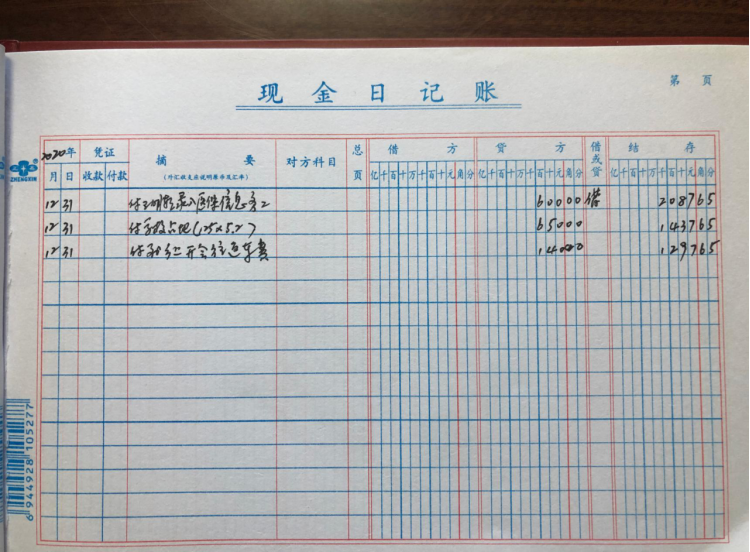 现金日记账
第 页
2020年 凭证 摘要 对方科目 总页 借方 贷方 借或贷 结存
月 日 收款 付款 (外汇收支应说明原币及汇率) 亿千百十万千百十元角分 亿千百十万千百十元角分 亿千百十万千百十元角分
12 31 付 录入医保信息 60000 借 208765
12 31 付 占地(125×5.2) 65000 143765
12 31 付 开会 车费 14000 129765
ZHENGXIN
6 944928 105277